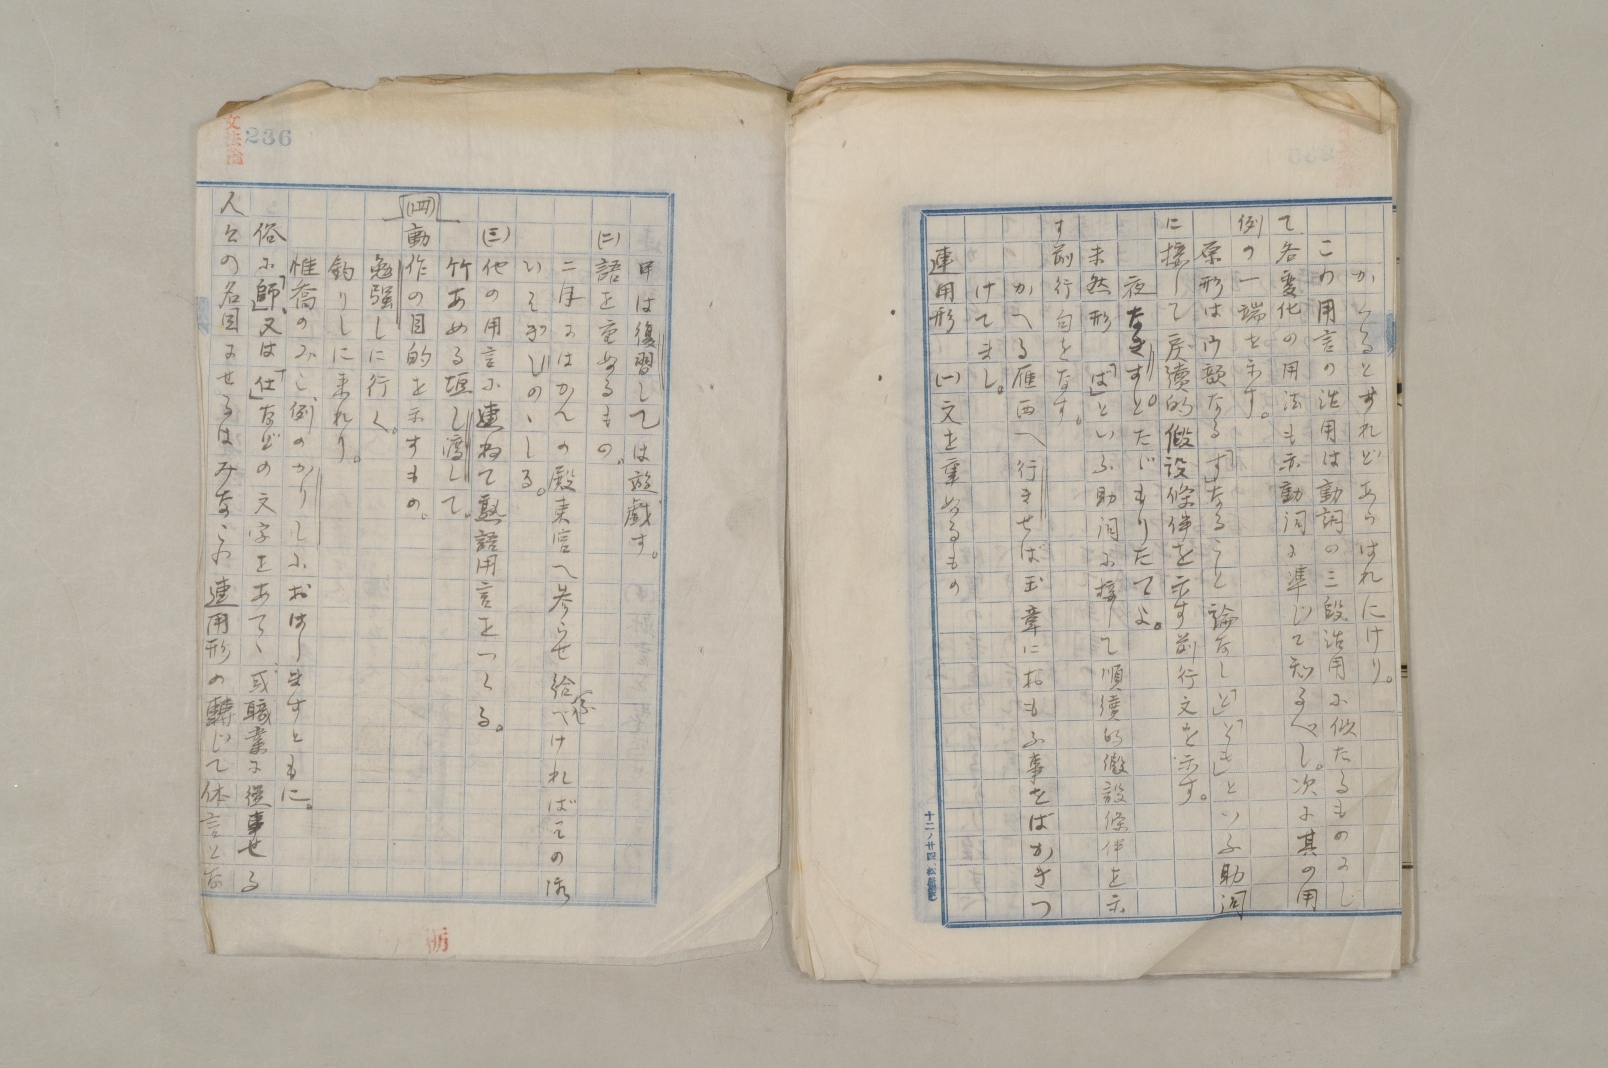 かくるとすれどあらはれにけり。
この用言の活用は動詞の三段活用に似たるものにし
て各変化の用法も亦動詞に準じて知るべし。次に其の用
例の一端を示す。
原形はウ韻なる「す」なること論なし「と」「とも」といふ助詞
に接して戻續的假設條件を示す前行文を示す。
夜なきすとたじもりたてよ。
未然形 「ば」といふ助詞に接して順續的假設條件を示
す前行句をなす。
かへる雁西へ行きせば玉章におもふ事をばかきつ
けてまし。
連用形 (一)文を重ぬるもの
十二ノ廿四
文法論
236
甲は復習しては遊戯す。
(二)語を重ぬるもの。
二月にはかんの殿東宮へ参らせ給べければその
いそぎしのゝしる。
(三)他の用言に連ねて熟語用言をつくる。
竹あめる垣し渡して。
(四)動作の目的を示すもの。
勉強しに行く。
釣りしに来れり。
惟喬のみこ例のかりしにおはしますともに。
俗に「師」又は「仕」などの文字をあて、或職業に從事せる
人々の名目にせるはみなこの連用形の轉じて体言とな